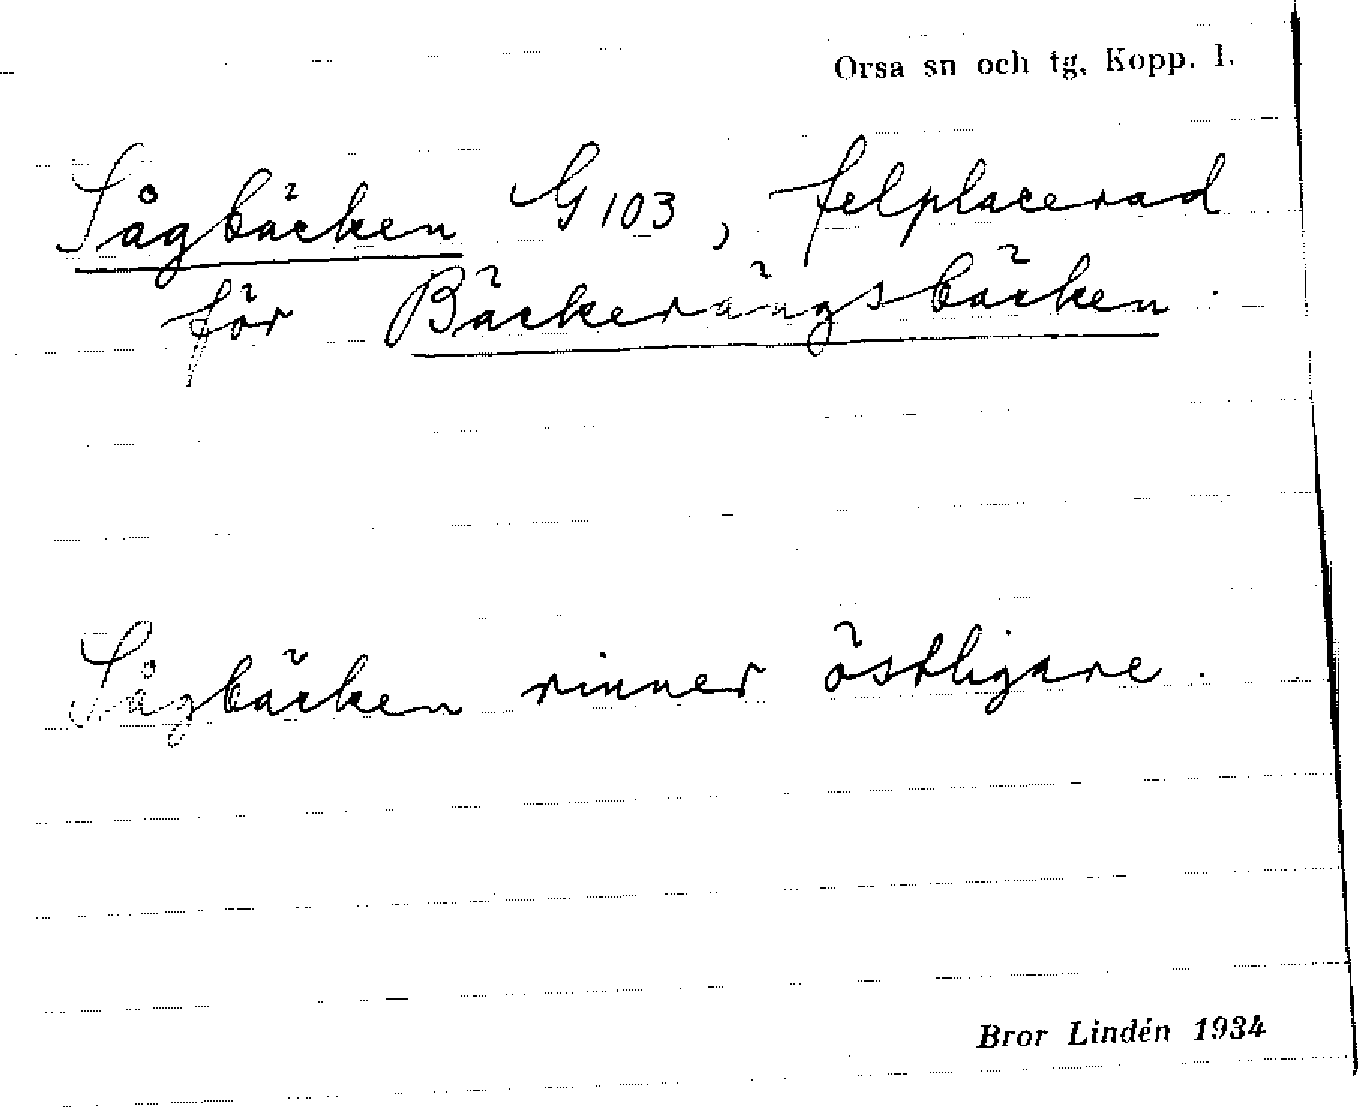 Orsa sn och tg, Kopp. l.
Sågbäcken G 103, felplacerad
för Bäckerängsbäcken.
Sågbäcken rinner östligare.
Bror Lindén 1934